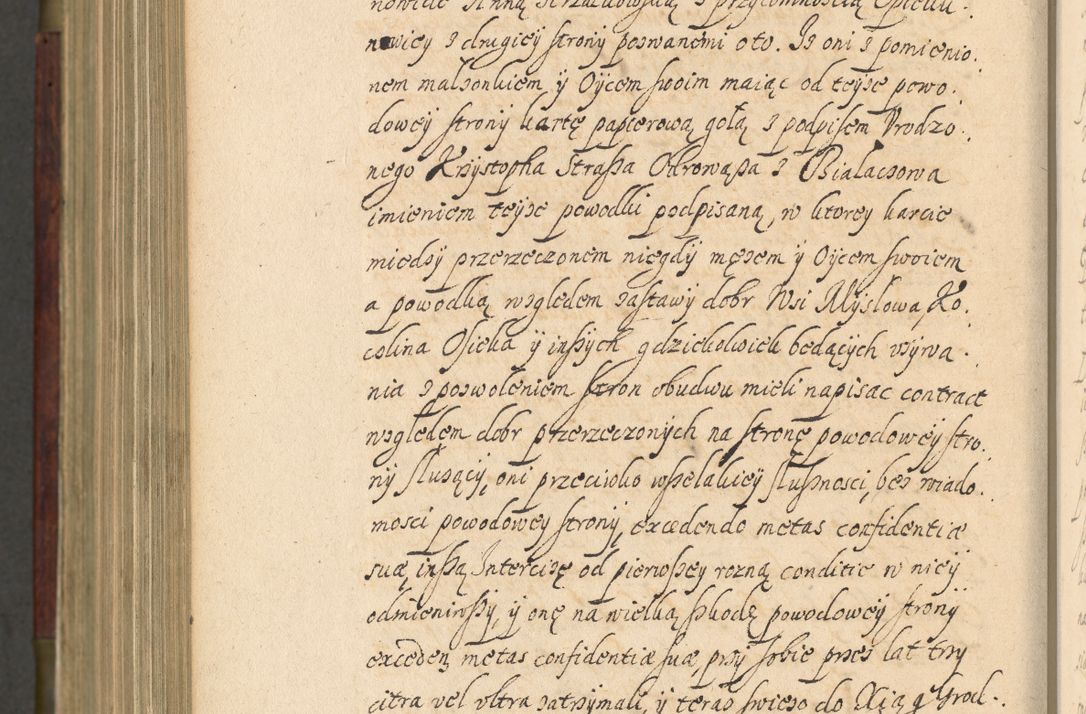 nowicie Anną Strzałkowską z przytomnoscią Opieku.
nowiey z drugiey strony pozwanemi oto. Iz oni z pomienio.
nem małzonkiem ÿ Oÿcem swoim maiąc od teÿze powo.
dowey strony kartę papierową gołą z podpisem Vrodzo.
nego Krzystopha Straßa Odrowąża z Białaczowa
imieniem teÿze powodki podpisaną, w ktorey karcie
miedzÿ przerzeczonem niegdÿ męzem ÿ Oÿcem swoiem
a powodką wzgledem zastawÿ dobr Wsi Mÿsłowa, Ko.
colina Osieka ÿ inßÿch gdziekolwiek będąćÿch vzÿwa.
nia z pozwoleniem stron obudwu mieli napisac contract
względem dobr przerzeczonÿch na stronę powodowey stro.
nÿ słuząćÿ, oni przeciwko wßelakiey słußnosci, bez wiado.
mosci powodoweÿ stronÿ, excedendo metas confidentiæ
suæ, inßą Intercizę od pierwßey rozną conditie w nieÿ
odmieniwßÿ, ÿ onę na wielką ßkodę powodowey stronÿ
exceden̄ metas confidentiæ suæ, przÿ sobie przez lat trzÿ
citra vel vltra zatrzÿmali, ÿ teraz swiezo do Xiąg Grod.